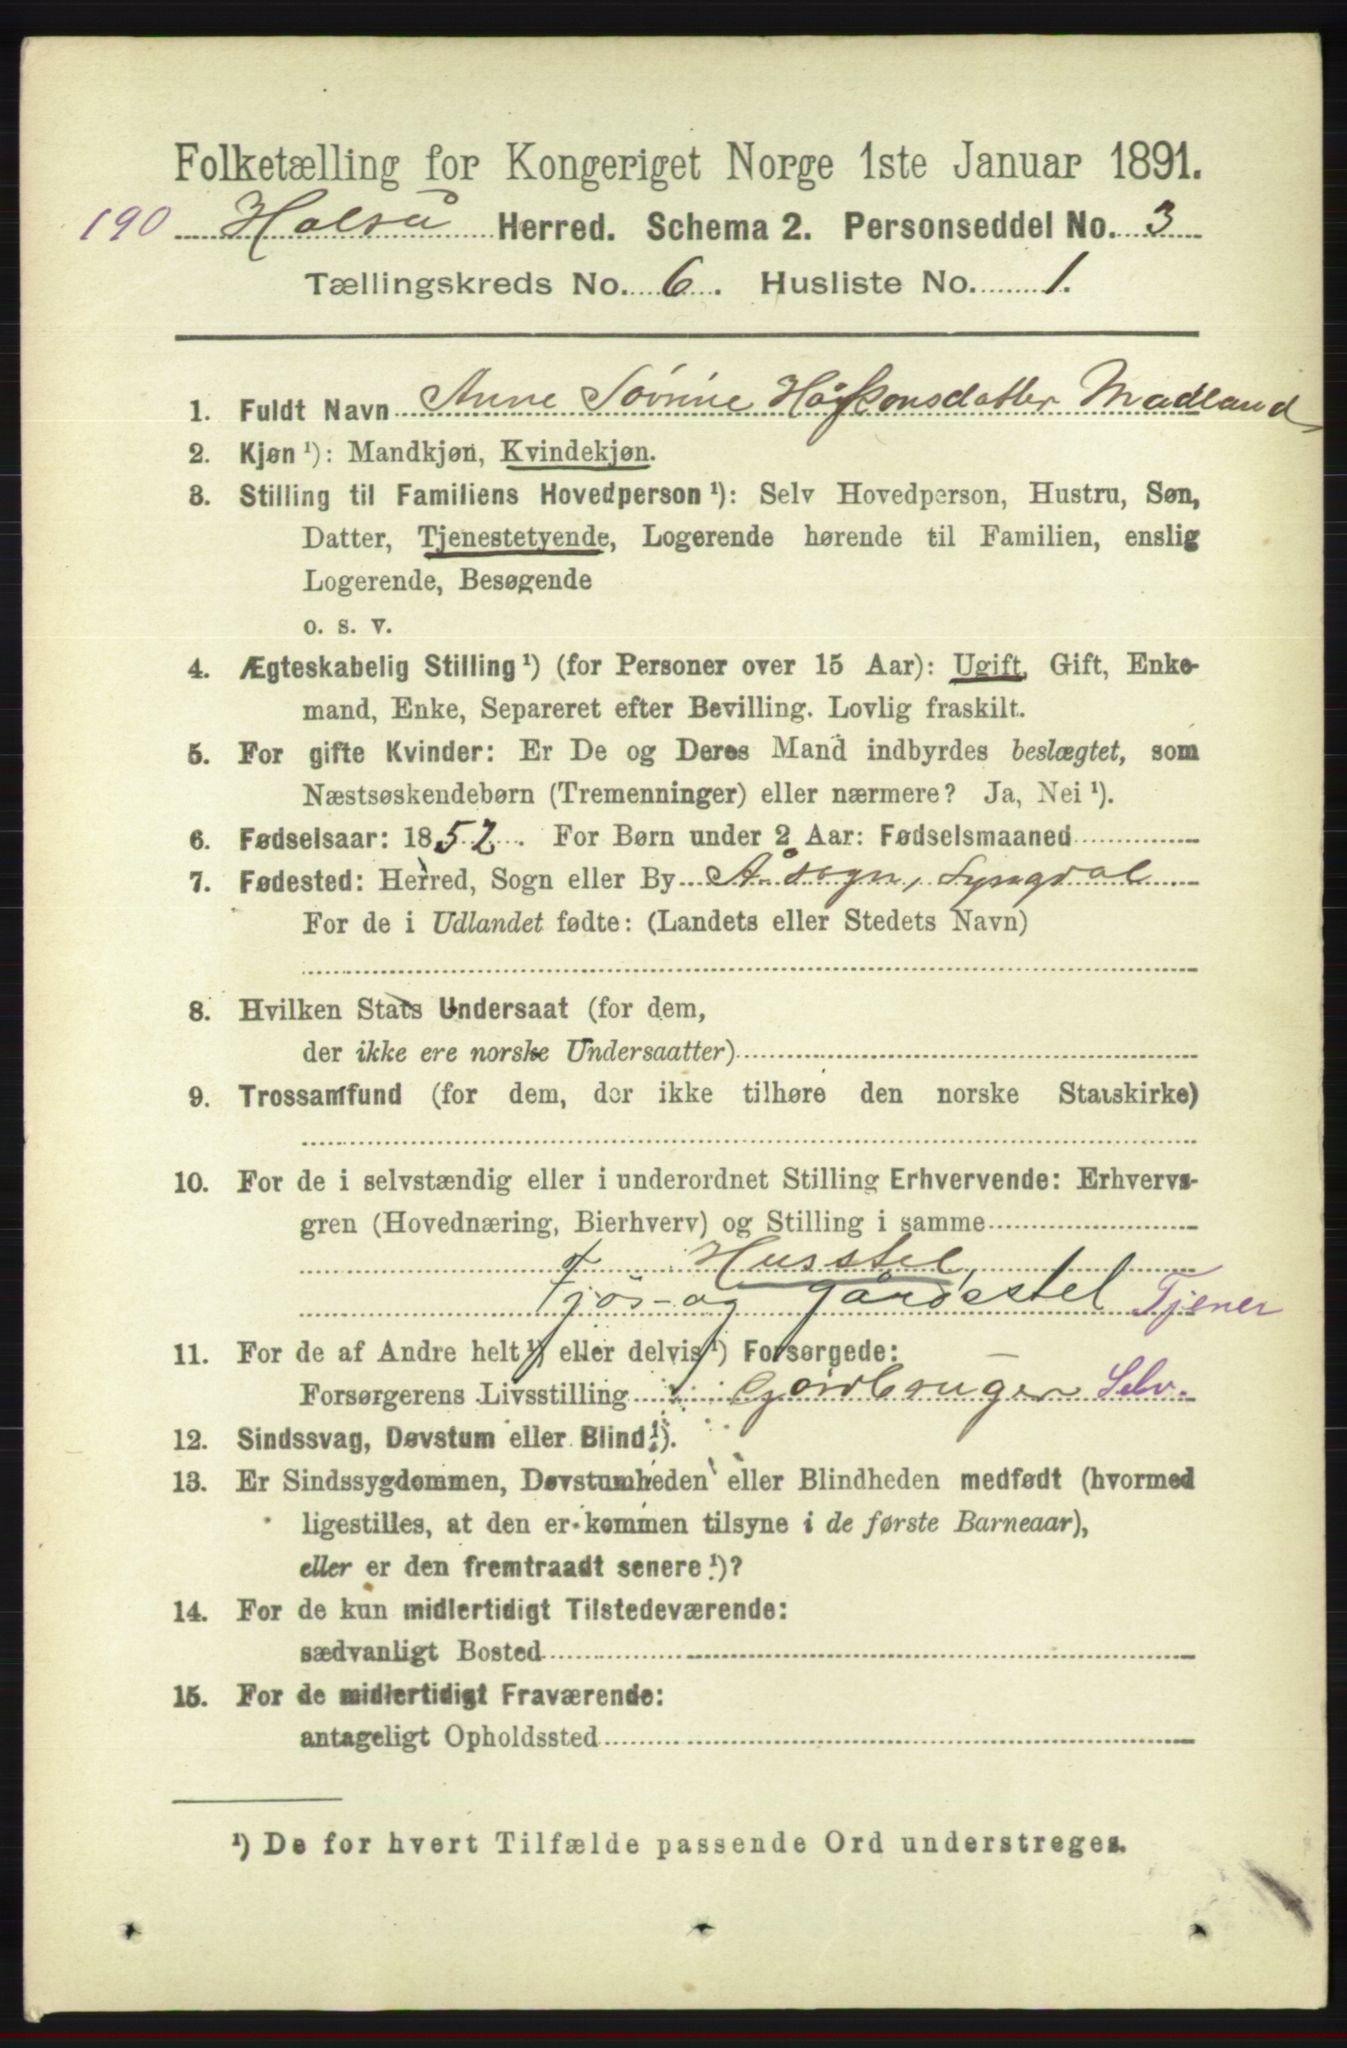 Folketælling for Kongeriget Norge 1ste Januar 1891.
190 Halså Herred. Schema 2. Personseddel No. 3
Tællingskreds No. 6. Husliste No. 1.
1. Fuldt Navn Anne Sørine Håkonsdatter Madland
2. Kjøn ¹): Mandkjøn, Kvindekjøn.
3. Stilling til Familiens Hovedperson ¹): Selv Hovedperson, Hustru, Søn,
Datter, Tjenestetyende, Logerende hørende til Familien, enslig
Logerende, Besøgende
o. s. v.
4. Ægteskabelig Stilling ¹) (for Personer over 15 Aar): Ugift, Gift, Enke-
mand, Enke, Separeret efter Bevilling. Lovlig fraskilt.
5. For gifte Kvinder: Er De og Deres Mand indbyrdes beslægtet, som
Næstsøskendebørn (Tremenninger) eller nærmere? Ja, Nei ¹).
6. Fødselsaar: 1852. For Børn under 2 Aar: Fødselsmaaned
7. Fødested: Herred, Sogn eller By Å sogn, Lyngdal
For de i Udlandet fødte: (Landets eller Stedets Navn)
8. Hvilken Stats Undersaat (for dem,
der ikke ere norske Undersaatter)
9. Trossamfund (for dem, der ikke tilhøre den norske Statskirke)
10. For de i selvstændig eller i underordnet Stilling Erhvervende: Erhvervs-
gren (Hovednæring, Bierhverv) og Stilling i samme
Husstel,
Fjøs- og Gårdsstel Tjener
11. For de af Andre helt ¹) eller delvis ¹) Forsørgede:
Forsørgerens Livsstilling Gårdbruger Selv.
12. Sindssvag, Døvstum eller Blind ¹).
13. Er Sindssygdommen, Døvstumheden eller Blindheden medfødt (hvormed
ligestilles, at den er kommen tilsyne i de første Barneaar),
eller er den fremtraadt senere ¹)?
14. For de kun midlertidigt Tilstedeværende:
sædvanligt Bosted
15. For de midlertidigt Fraværende:
antageligt Opholdssted
¹) De for hvert Tilfælde passende Ord understreges.